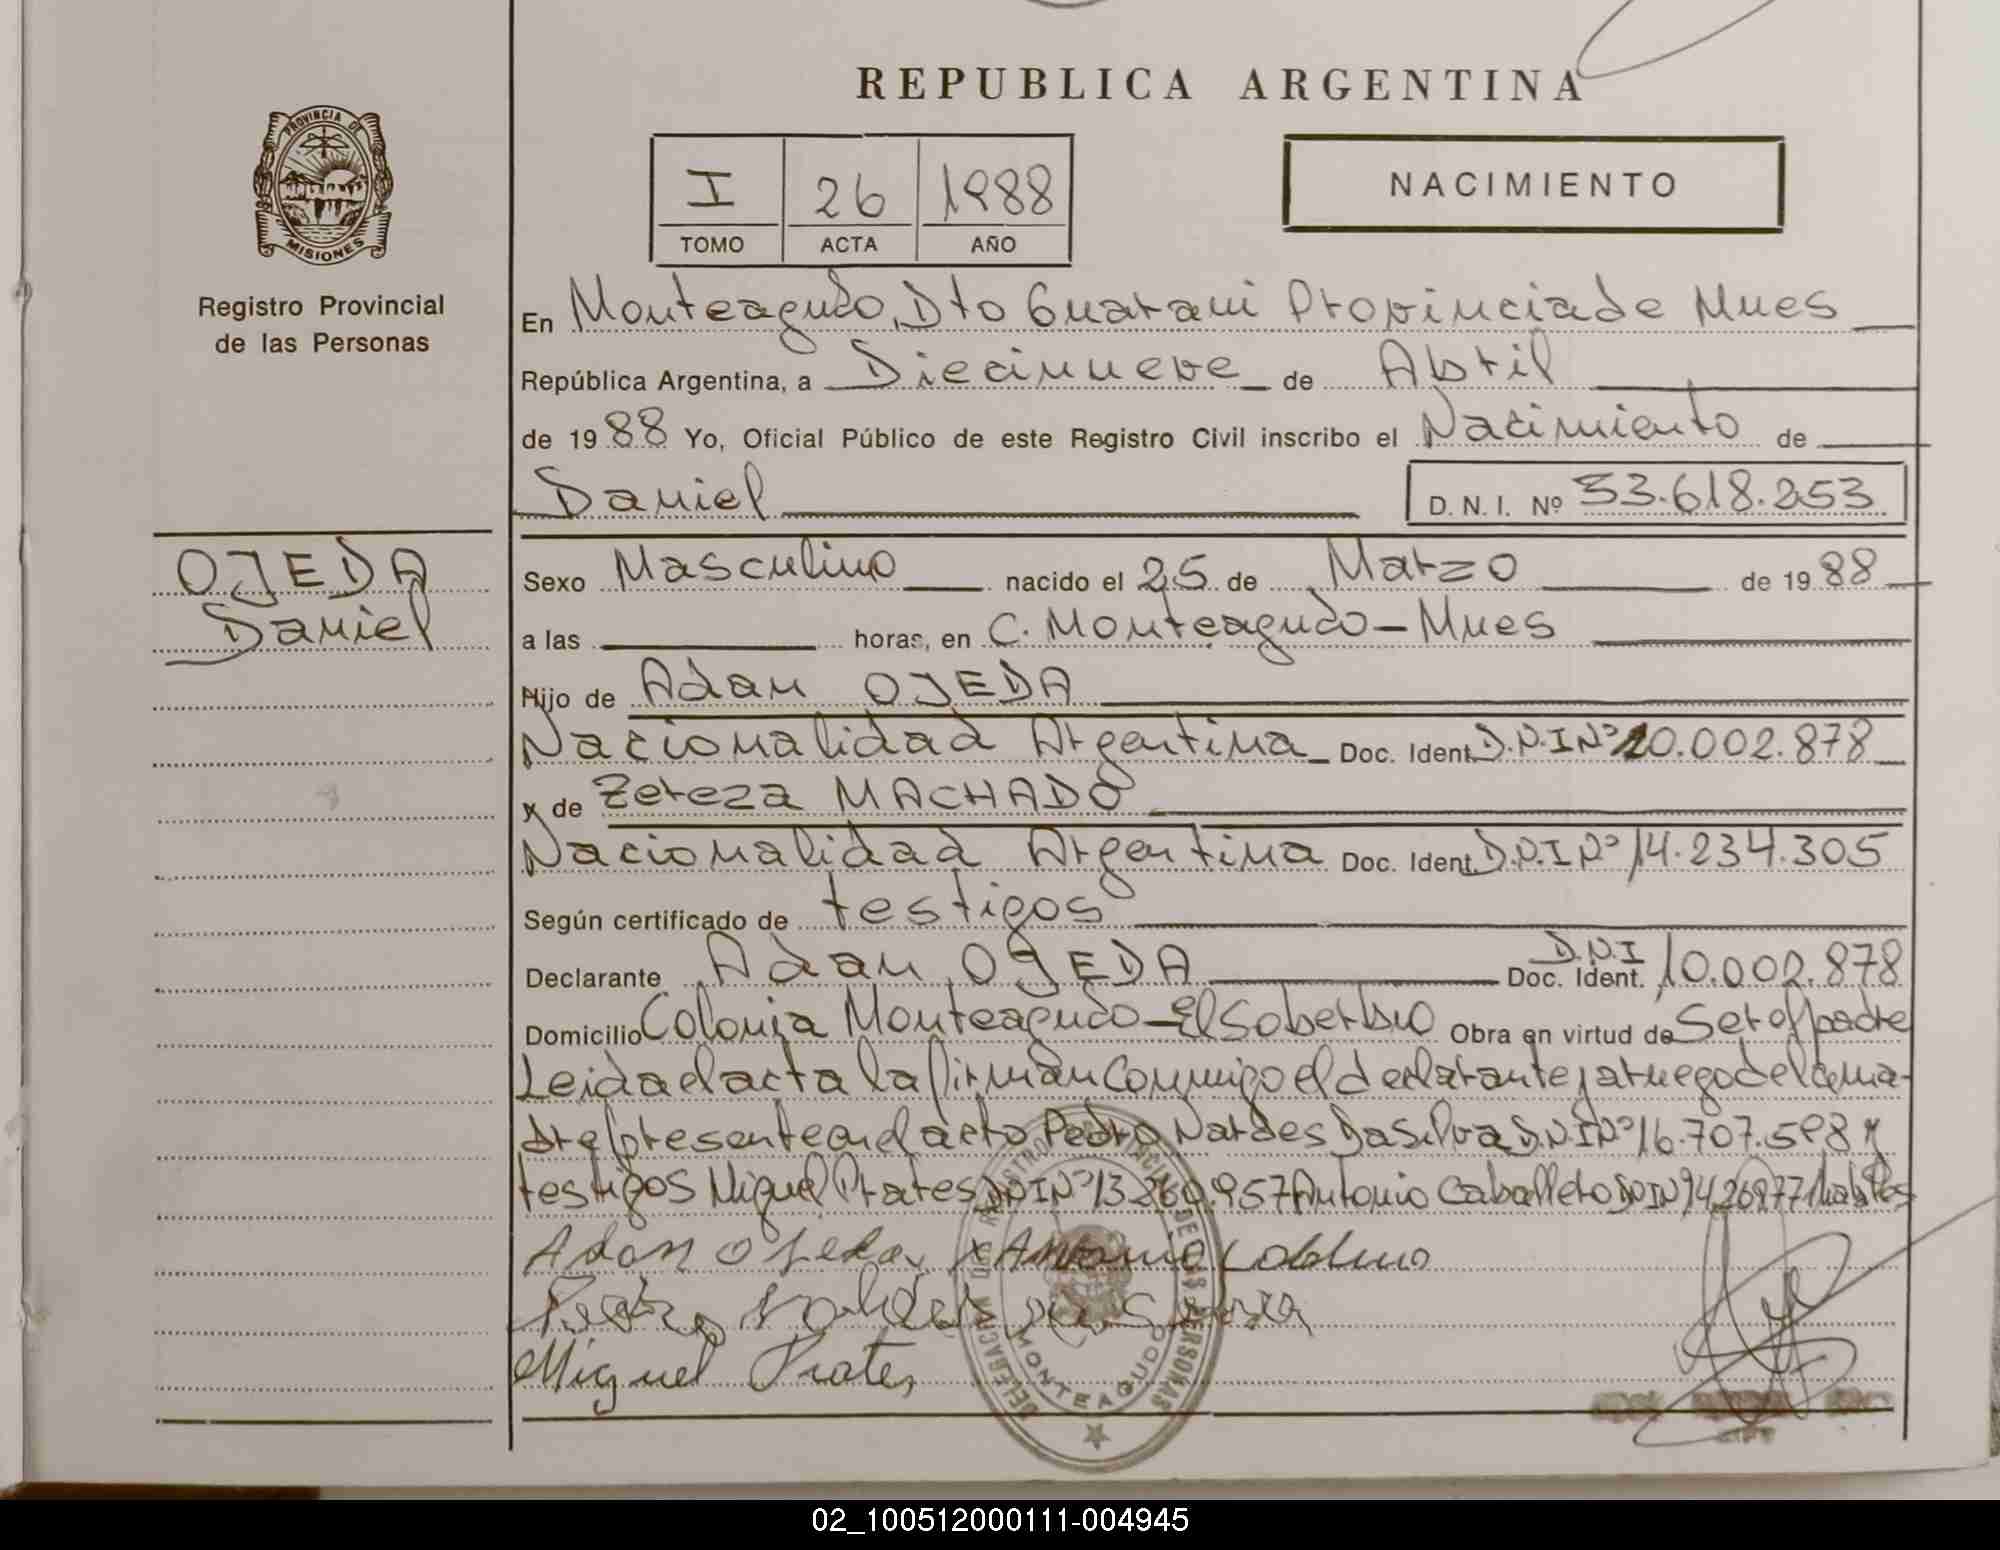 REPUBLICA ARGENTINA
PROVINCIA DE
MISIONES
Registro Provincial
de las Personas
I 26 1988
TOMO ACTA AÑO
NACIMIENTO
En Monteagudo, Dto Guarani Provincia de Mnes
República Argentina, a Diecinueve de Abril
de 1988 Yo, Oficial Público de este Registro Civil inscribo el Nacimiento de
Daniel D. N. I. Nº 33.618.253
OJEDA
Daniel
Sexo Masculino nacido el 25 de Marzo de 1988
a las horas, en C. Monteagudo - Mnes
Hijo de Adan OJEDA
Nacionalidad Argentina Doc. Ident. D.N.I Nº 10.002.878
y de Zereza MACHADO
Nacionalidad Argentina Doc. Ident. D.N.I Nº 14.234.305
Según certificado de testigos
Declarante Adan OJEDA D.N.I Doc. Ident. 10.002.878
Domicilio Colonia Monteagudo - El Soberbio Obra en virtud de Ser el padre
Leida el acta la firman conmigo el declarante, a ruego de la ma-
dre presente en el acto Pedro Nardes Da Silva D.N.I Nº 16.707.598 y
testigos Miguel Prates D.N.I Nº 13.260.957 Antonio Caballero D.N.I N
Adan Ojeda Antonio
Pedro
Miguel Prates
DELEGACION DEL REGISTRO PROVINCIAL DE LAS PERSONAS
MONTEAGUDO
02_100512000111-004945